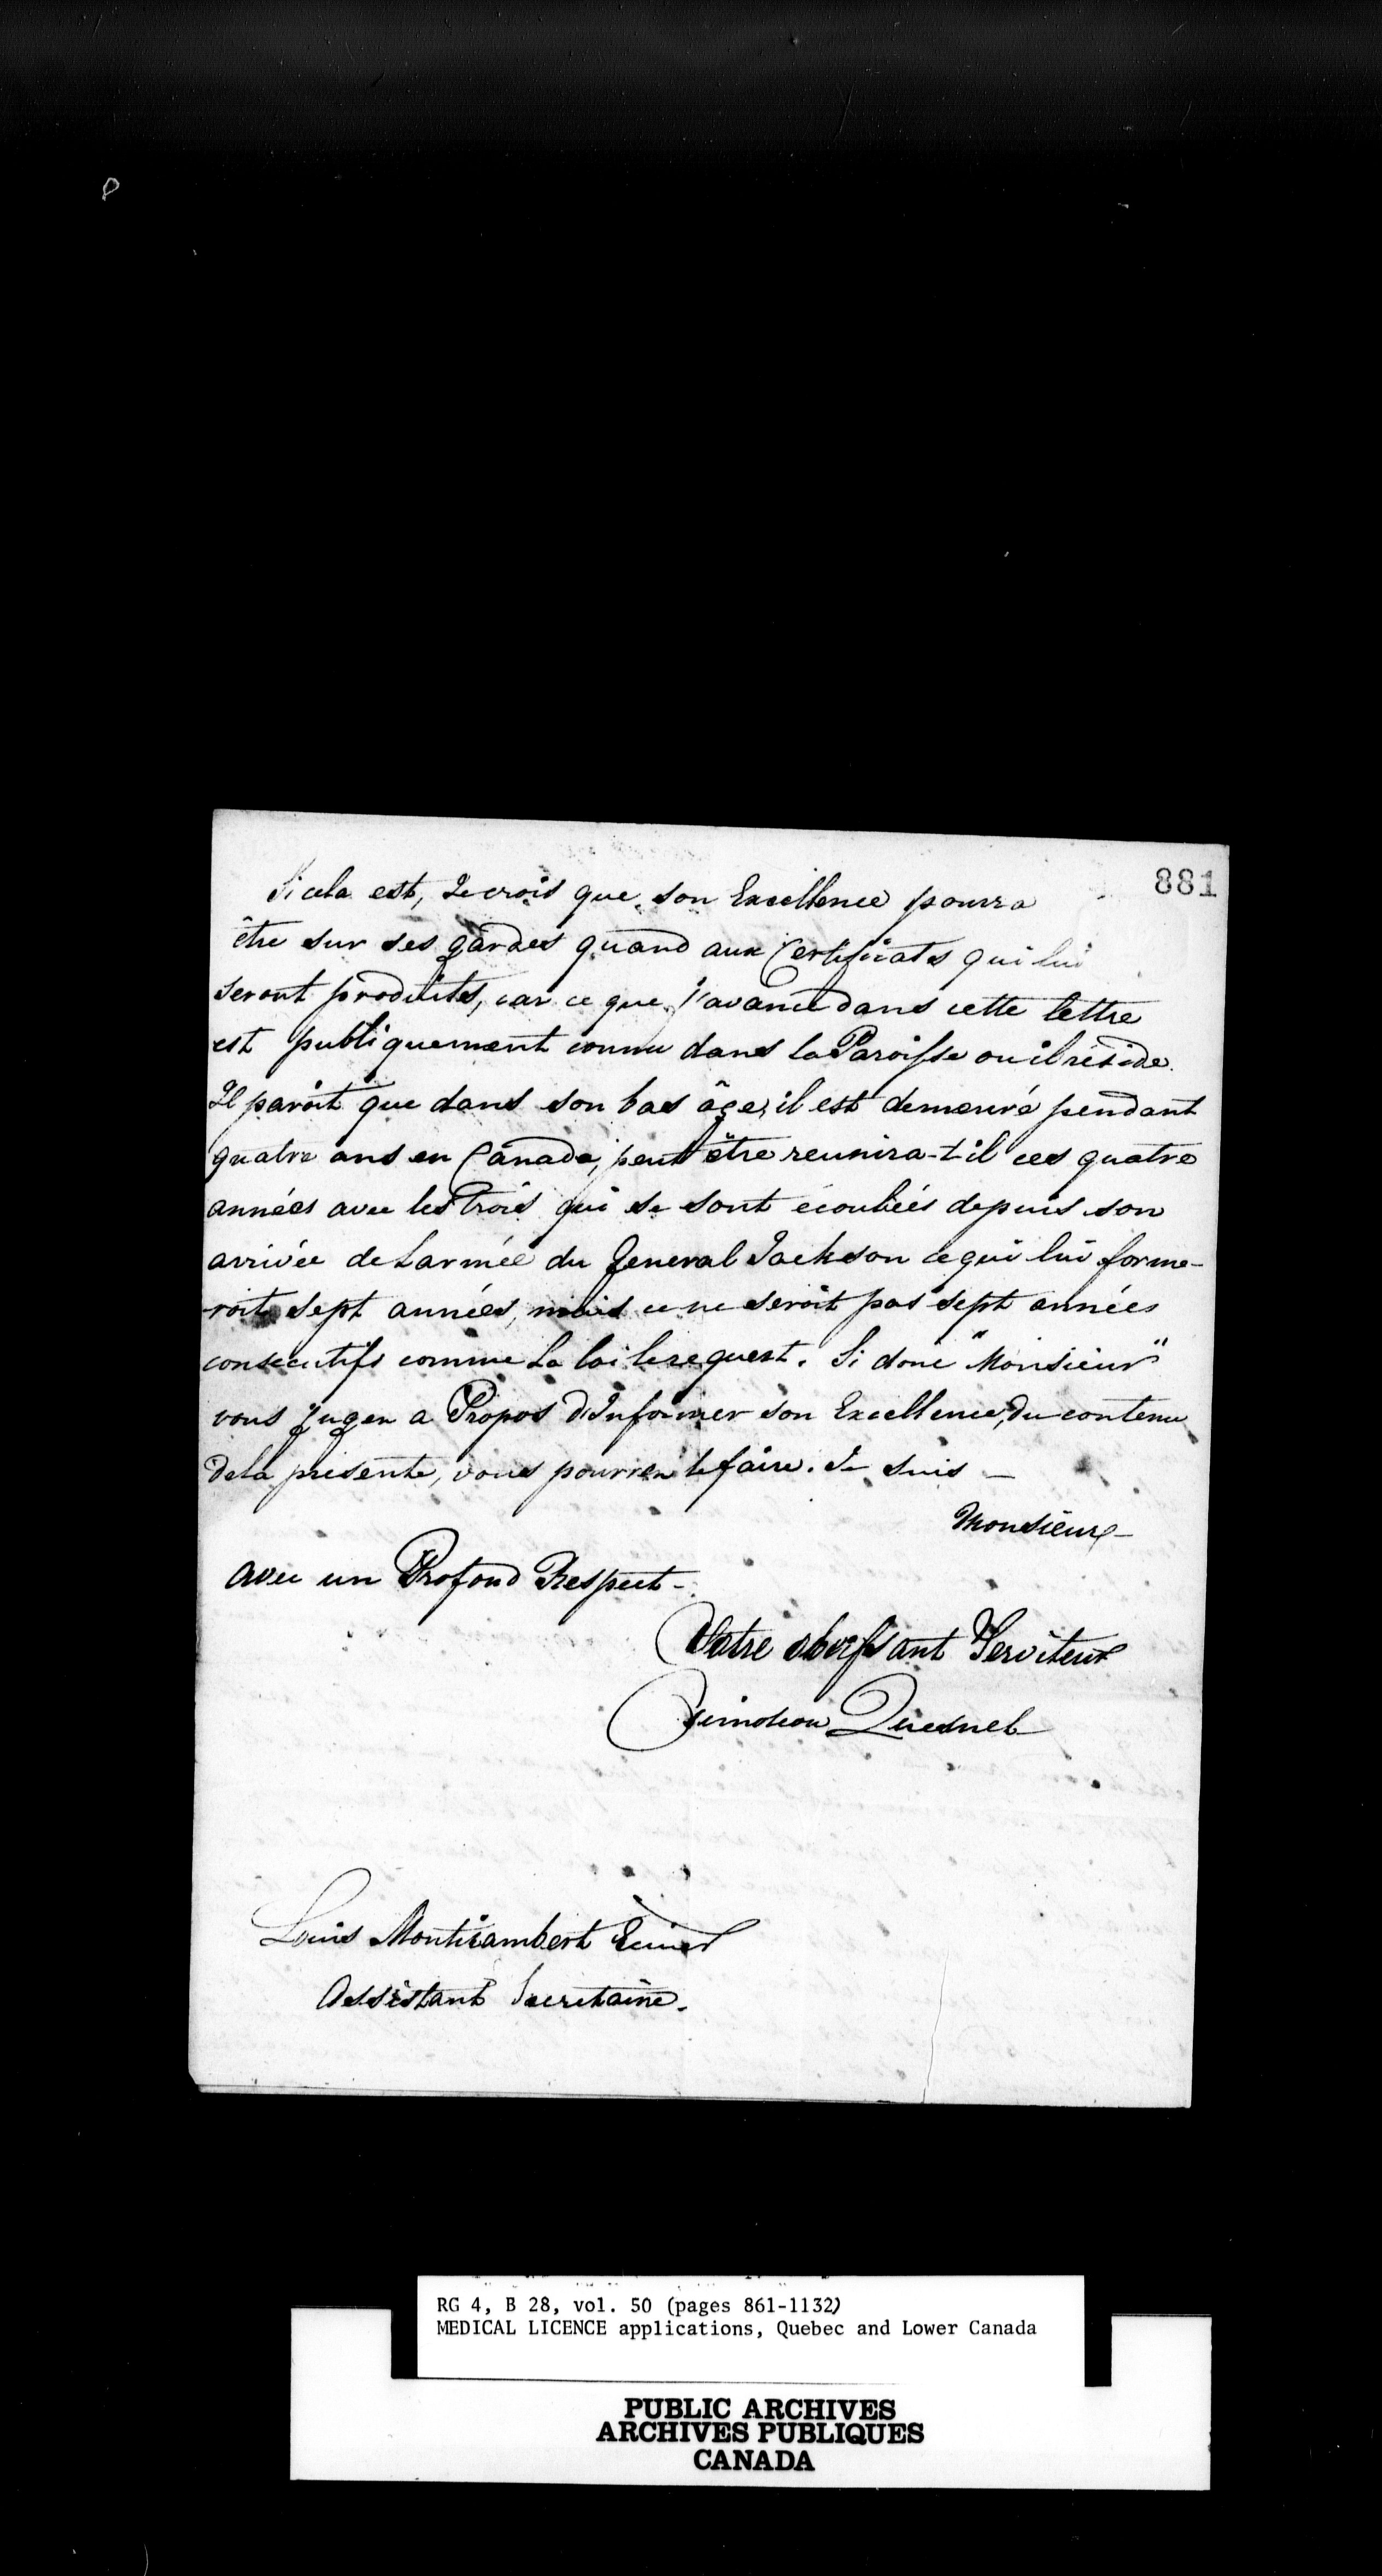 881
Si cela est, Je crois que son Excellence pourra
être sur ses gardes quand aux Certificats qui lui
seront produits, car ce que j'avance dans cette lettre
est publiquement connu dans la Paroisse ou il réside.
Il paroit que dans son bas âge, il est demeuré pendant
quatre ans en Canada, peut être reunira-t-il ces quatre
années avec les trois qui se sont écoulées depuis son
arrivée de L'armée du General Jackson ce qui lui forme-
roit sept années, mais ce ne seroit pas sept années
consecutifs comme La loi le requert. Si donc "Monsieur"
vous jugez a Propos d'Informer son Excellence, du contenu
de la presente, vous pourrez le faire. Je suis —
Monsieur —
Avec un Profond Respect —
Votre obeissant Serviteur
Timoleon Quesnel
Louis Montizambert Ecuier
Assistant Secretaire.
RG 4, B 28, vol. 50 (pages 861-1132)
MEDICAL LICENCE applications, Quebec and Lower Canada
PUBLIC ARCHIVES
ARCHIVES PUBLIQUES
CANADA